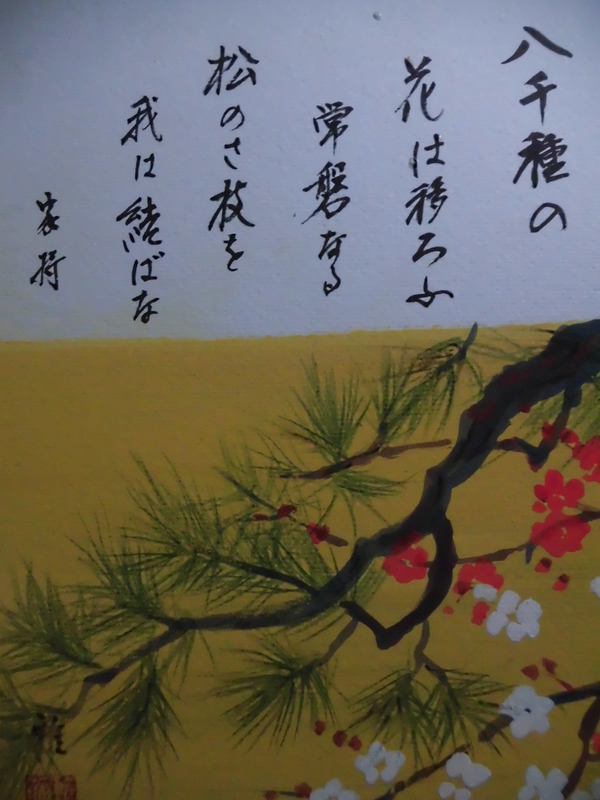 八千種の
花は移ろふ
常磐なる
松のさ枝を
我は結ばな
家持
雅